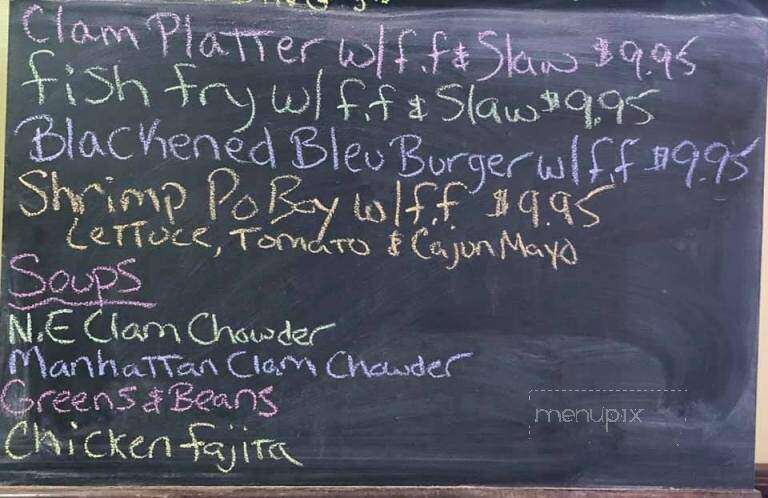 Clam Platter w/f.f & Slaw $9.95
fish fry w/f.f & Slaw $9.95
Blackened Bleu Burger w/f.f $9.95
Shrimp Po Boy w/f.f $9.95
Lettuce, Tomato & Cajun Mayo
Soups
N.E Clam Chowder
Manhattan Clam Chowder
Greens & Beans
Chicken fajita
menupix